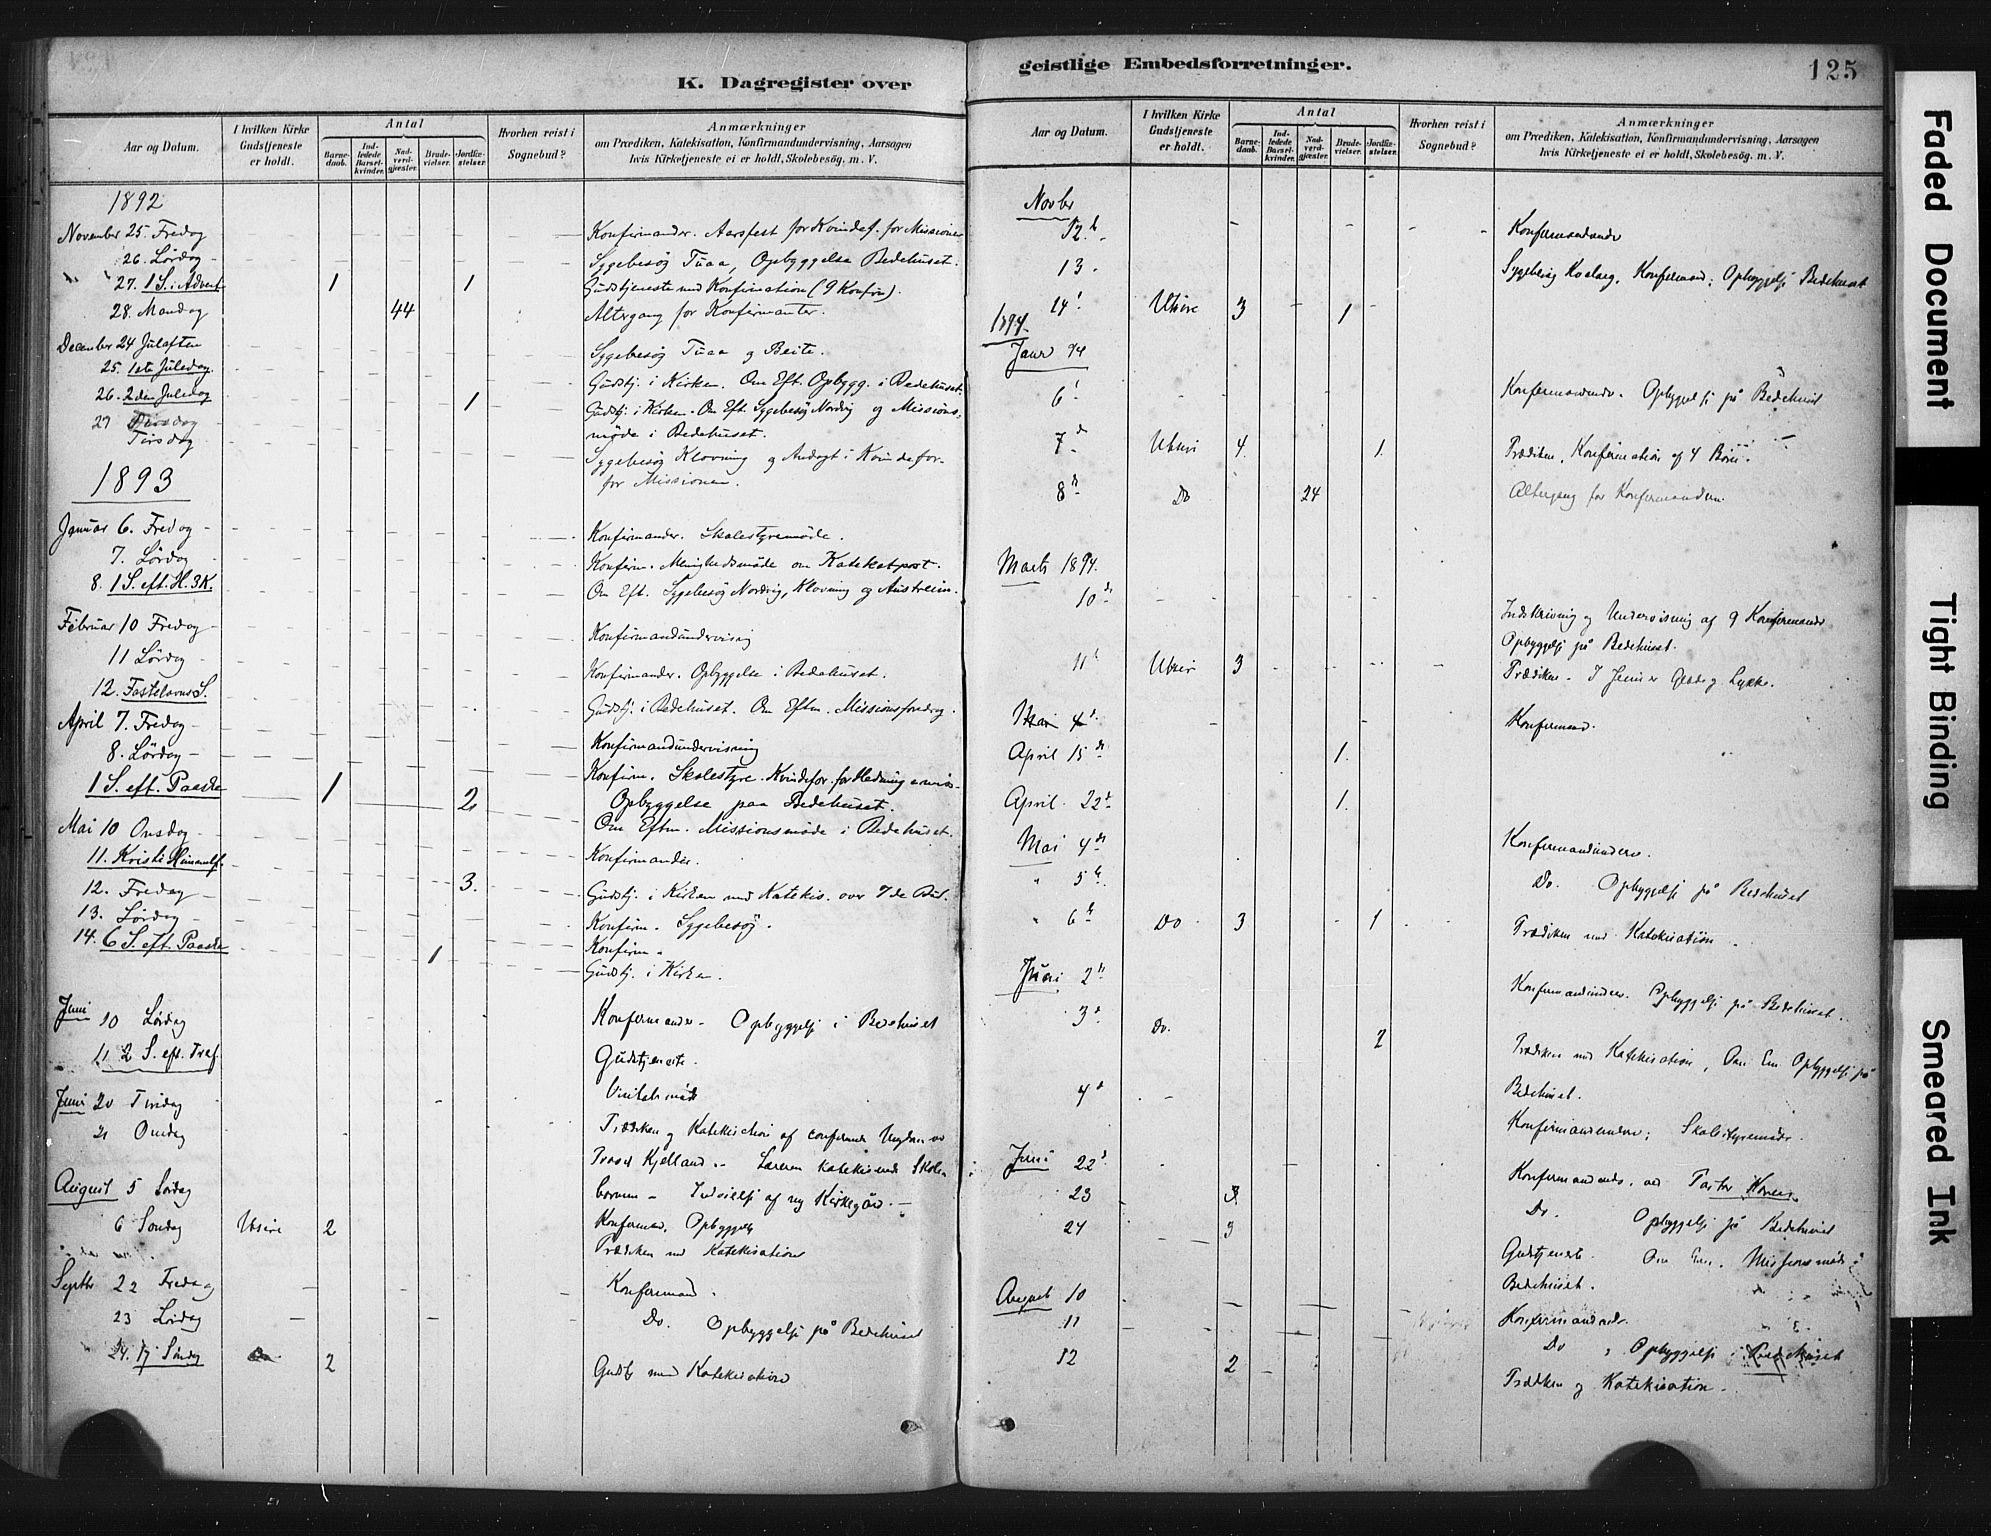 K. Dagregister over
Aar og Datum.
I hvilken Kirke Gudstjeneste er holdt.
Antal
Barnedaab.
Indledede Barselkvinder.
Nadverdgjæster.
Brudevielser.
Jordfæstelser.
Hvorhen reist i Sognebud?
Anmærkninger
om Prædiken, Katekisation, Konfirmandundervisning, Aarsagen
hvis Kirketjeneste ei er holdt, Skolebesøg, m. V.
1892
November 25. Fredag Konfirmander. Aarsfest for Kvindef. for Missionen
26. Lördag Sygebesög Tuaa, Opbyggelse Bedehuset.
27. 1 S. i Advent 1 1 Gudstjeneste med Konfirmation (9 Konfir).
28. Mandag 44 Altergang for Konfirmanter.
December 24 Juleaften Sygebesög Tuaa og Beite.
25. 1ste Juledag. Gudstj. i Kirken. Om Eft. Opbygg. i Bedehuset.
26. 2den Juledag 1 Gudstj. i Kirken. Om Eft. Sygebesög Nordvig og Missions-
möde i Bedehuset.
27 Tirsdag Sygebesög Klovning og Andagt i Kvindefor-
for Missionen.
1893
Januar 6. Fredag Konfirmander. Skolestyremöde.
7. Lördag Konfirm. Menighedsmöde om Katekatpost.
8. 1 S. eft. H. 3 K. Om Eft. Sygebesög Nordvig, Klovning og Austreim.
Februar 10 Fredag Konfirmandundervisnig
11 Lördag Konfirmander. Opbyggelse i Bedehuset.
12. Fastelavns S. Gudstj. i Bedehuset. Om Eftm. Missionsforedrag.
April 7. Fredag Konfirmandundervisning
8. Lördag Konfirm. Skolestyre. Kvindefor. for Hedningemis-
Opbyggelse paa Bedehuset.
1 S. eft. Paaske 1 2 Om Eftm. Missionsmöde i Bedehuset.
Mai 10 Onsdag Konfirmander.
11. Kristi Himmelf. 3. Gudstj. i Kirken med Katekis. over 7de Bud.
12. Fredag Konfirm. Sygebesög.
13. Lördag Konfirm.
14. 6 S. eft. Paaske 1 Gudstj. i Kirken.
Juni 10 Lördag Konfirmander. Opbyggelse i Bedehuset
11 2 S. eft. Tref. Gudstjeneste.
Juni 20 Tirsdag
21 Onsdag Prædiken og Katekisation af confirmerede Ungdom ved
Provst Kjelland. Læreren katekiserede Skole-
börnene - Indvielse af ny Kirkegård.
August 5 Lördag Konfirmand. Opbyggels
6 Sondag Utsire 2 Prædiken med Katekisation
Septbr 22 Fredag Konfirmand.
23 Lördag Do. Opbyggelse på Bedehuset
24. 17 Söndag Do 2 Gudstj med Katekisation
geistlige Embedsforretninger.
125
Aar og Datum.
I hvilken Kirke Gudstjeneste er holdt.
Antal
Barnedaab.
Indledede Barselkvinder.
Nadverdgjæster.
Brudevielser.
Jordfæstelser.
Hvorhen reist i Sognebud?
Anmærkninger
om Prædiken, Katekisation, Konfirmandundervisning, Aarsagen
hvis Kirketjeneste ei er holdt, Skolebesög, m. V.
Novbr
12. Konfirmandundv
13. Sygebesög Kvalvg. Konfirmand; Opbyggelse Bedehuset
14 Utsire 3 1
1894.
Janr 94
6 Konfirmandundv. Opbyggelse på Bedehuset
7 Utsire 4 1 Prædiken. Konfirmation af 4 Börn.
8 Do 24 Altergang for Konfirmanderne.
Marts 1894.
10 Indskrivning og Undervisning af 9 Konfirmander
Opbyggelse på Bedehuset.
11 Utsire 3 Prædiken. I Jesu er Glæde og Lykke.
Mai 4 Konfirmand.
April 15 1.
April 22 1.
Mai 4 Konfirmandunderv.
" 5 Do. Opbyggelse på Bedehuset
" 6 Do 3 1 Prædiken med Katekisation.
Juni 2 Konfirmandunderv. Opbyggelse på Bedehuset.
3 Do. 2 Prædiken med Katekisation, Om Em Opbyggelse på
Bedehuset.
4 Konfirmandunderv; Skolestyremöde.
Juni 22 Konfirmandundv. ved Pastor
23 3 Do. Opbyggelse på Bedehuset
24 3 Gudstjeneste. Om Em. Missionsmöde
Bedehuset.
August 10 Konfirmandundv.
11 Do , Opbyggelse Bedehuset
12 2 Prædiken og Katekisation.
Faded Document
Tight Binding
Smeared Ink